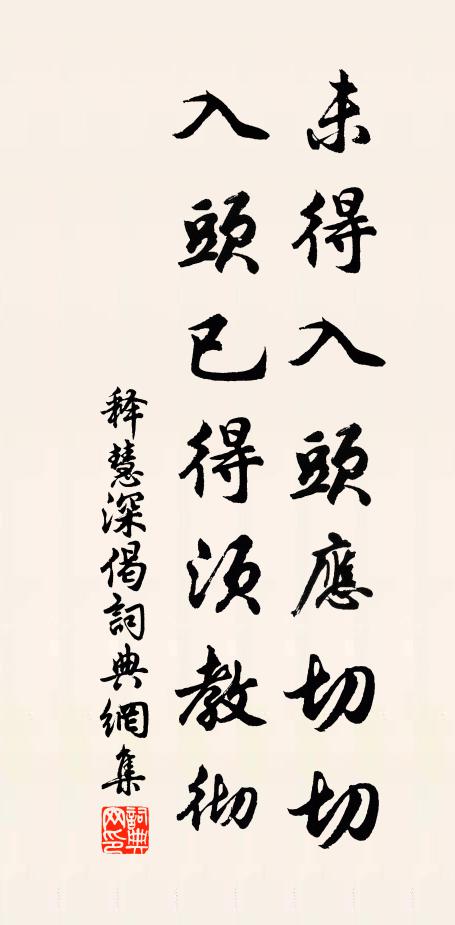 未得入頭應切切
入頭已得須教彻
释慧深偈詞典網集
詞典网印